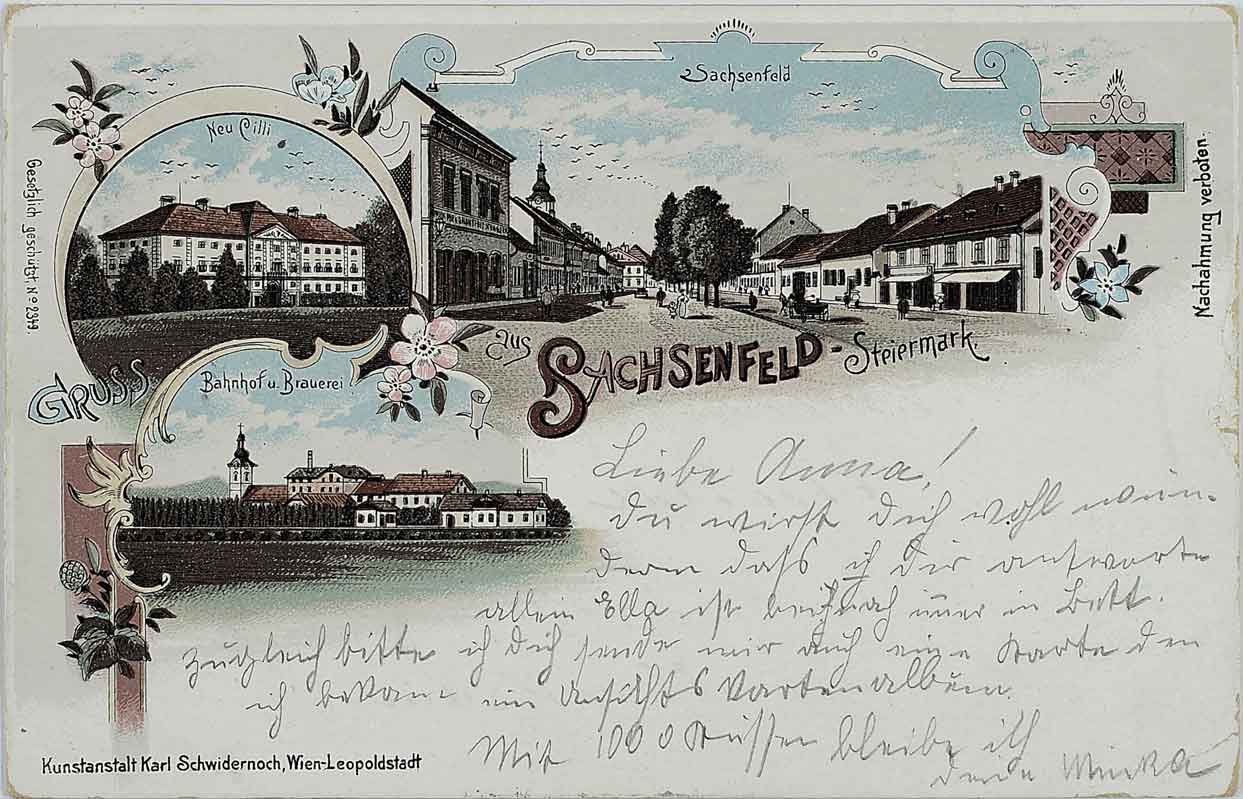 Sachsenfeld
Neu Cilli
Gesetzlich geschützt. No 2349
Nachahmung verboten.
GRUSS
aus SACHSENFELD - Steiermark.
Bahnhof u. Brauerei
Liebe Anna!
du wirst dich wohl wun-
dern dass ich dir antworte
allein Ella ist beinah immer in Bett.
Zugleich bitte ich dich sende mir auch eine Karte den
ich bekam ein Ansichtskartenalbum.
Mit 1000 Küssen bleibe ich
deine Minka
Kunstanstalt Karl Schwidernoch, Wien-Leopoldstadt